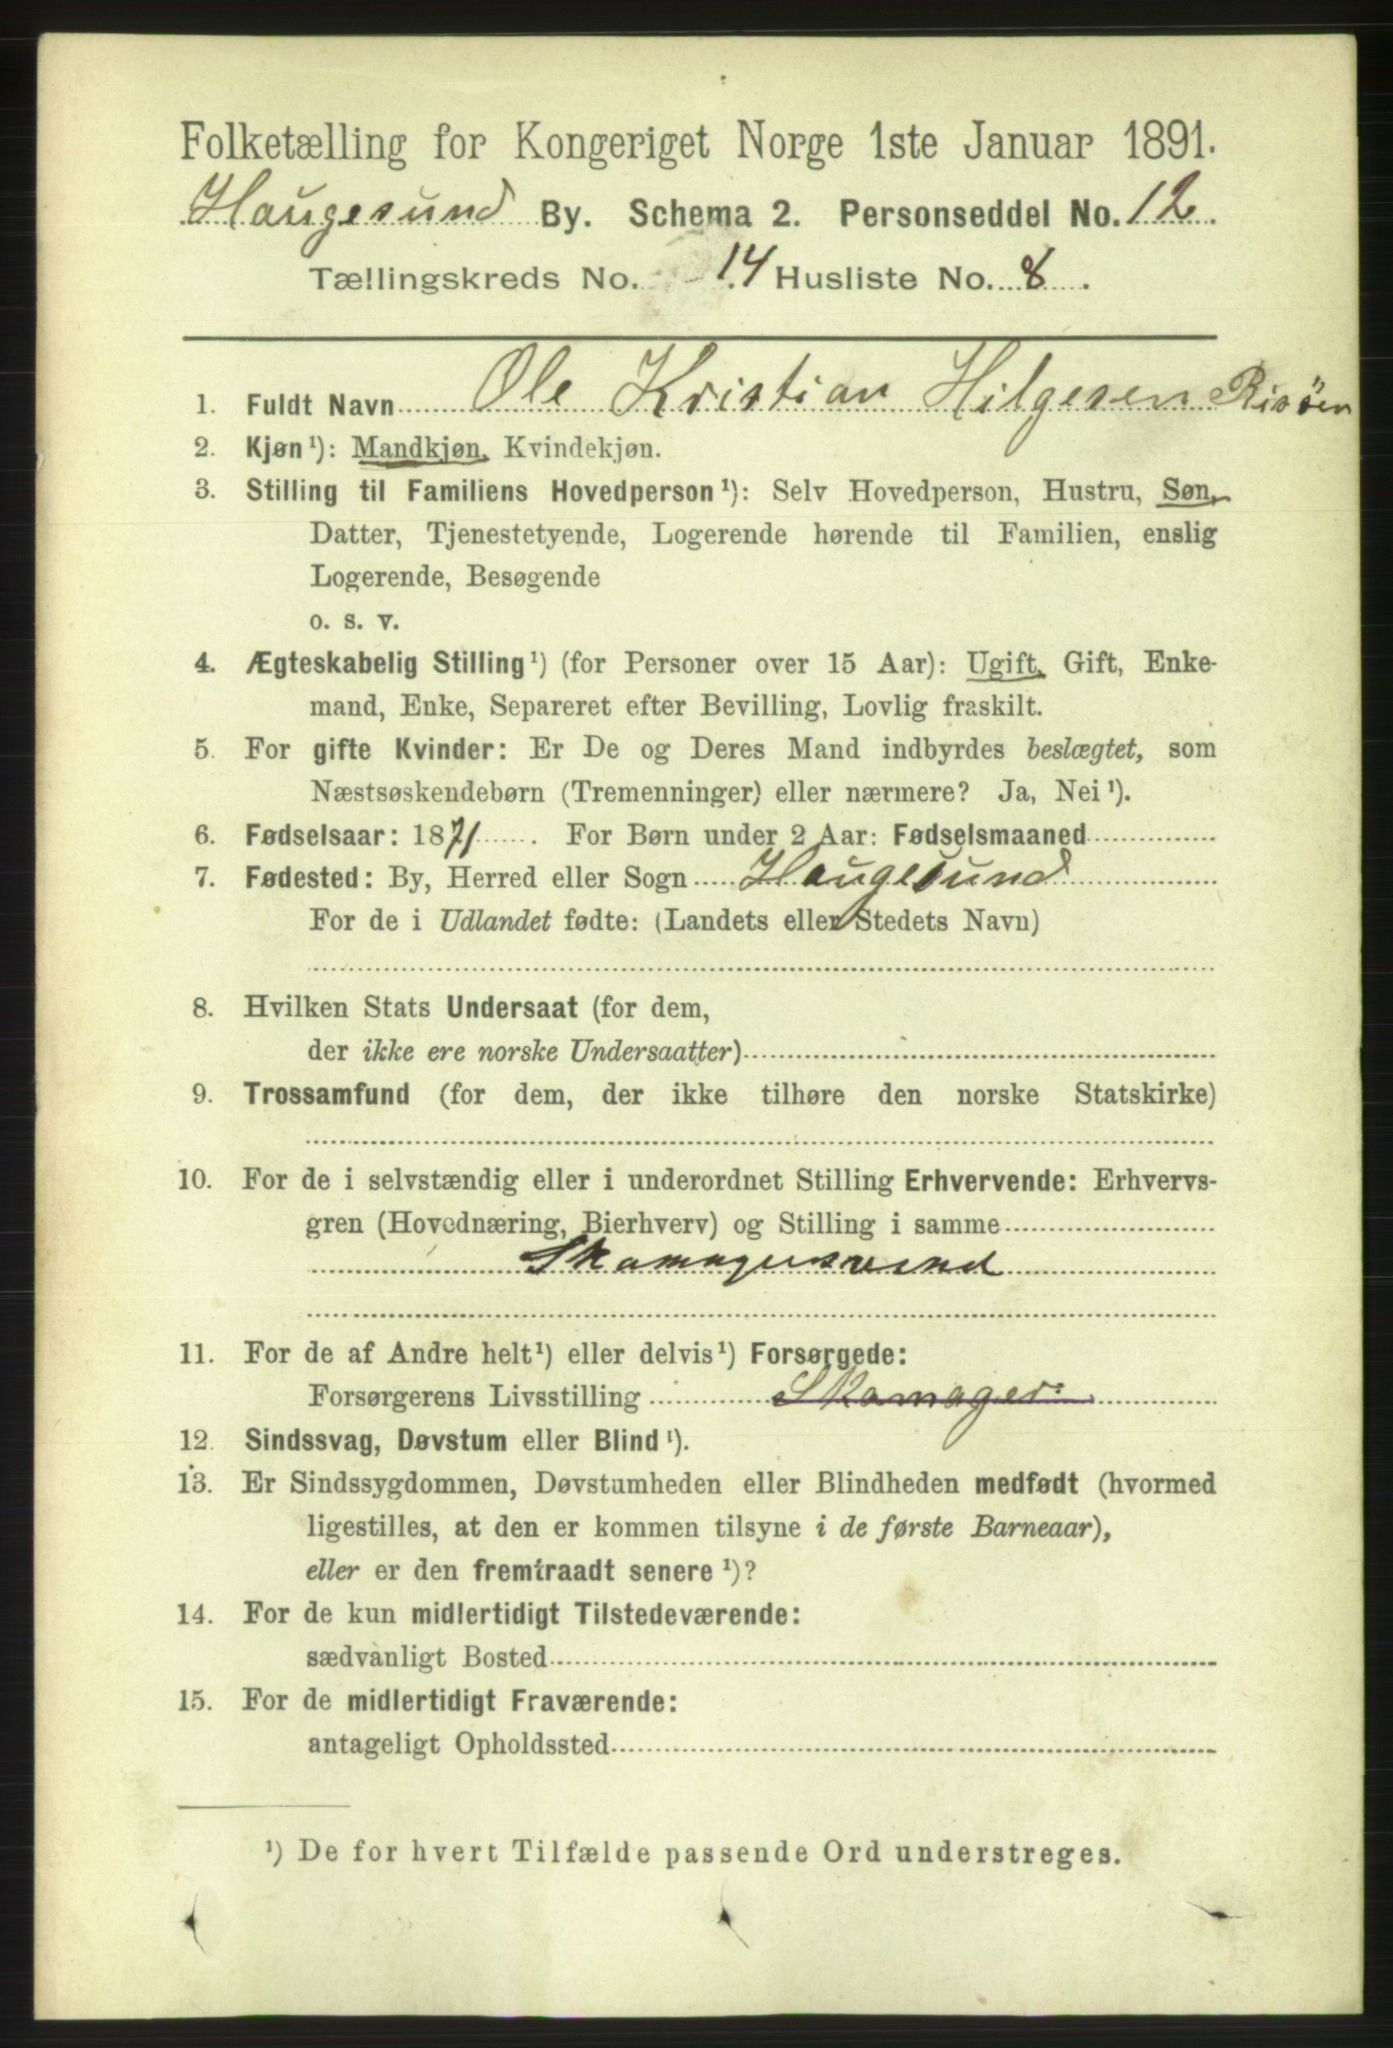 Folketælling for Kongeriget Norge 1ste Januar 1891.
Haugesund By. Schema 2. Personseddel No. 12.
Tællingskreds No. 14 Husliste No. 8.
1. Fuldt Navn Ole Kristian Hilgesen Risöen
2. Kjøn ¹): Mandkjøn, Kvindekjøn.
3. Stilling til Familiens Hovedperson ¹): Selv Hovedperson, Hustru, Søn,
Datter, Tjenestetyende, Logerende hørende til Familien, enslig
Logerende, Besøgende
o. s. v.
4. Ægteskabelig Stilling ¹) (for Personer over 15 Aar): Ugift, Gift, Enke-
mand, Enke, Separeret efter Bevilling, Lovlig fraskilt.
5. For gifte Kvinder: Er De og Deres Mand indbyrdes beslægtet, som
Næstsøskendebørn (Tremenninger) eller nærmere? Ja, Nei ¹).
6. Fødselsaar: 1871. For Børn under 2 Aar: Fødselsmaaned
7. Fødested: By, Herred eller Sogn Haugesund
For de i Udlandet fødte: (Landets eller Stedets Navn)
8. Hvilken Stats Undersaat (for dem,
der ikke ere norske Undersaatter)
9. Trossamfund (for dem, der ikke tilhøre den norske Statskirke)
10. For de i selvstændig eller i underordnet Stilling Erhvervende: Erhvervs-
gren (Hovednæring, Bierhverv) og Stilling i samme
Skomagersvend
11. For de af Andre helt ¹) eller delvis ¹) Forsørgede:
Forsørgerens Livsstilling Skomager
12. Sindssvag, Døvstum eller Blind ¹).
13. Er Sindssygdommen, Døvstumheden eller Blindheden medfødt (hvormed
ligestilles, at den er kommen tilsyne i de første Barneaar),
eller er den fremtraadt senere ¹)?
14. For de kun midlertidigt Tilstedeværende:
sædvanligt Bosted
15. For de midlertidigt Fraværende:
antageligt Opholdssted
¹) De for hvert Tilfælde passende Ord understreges.